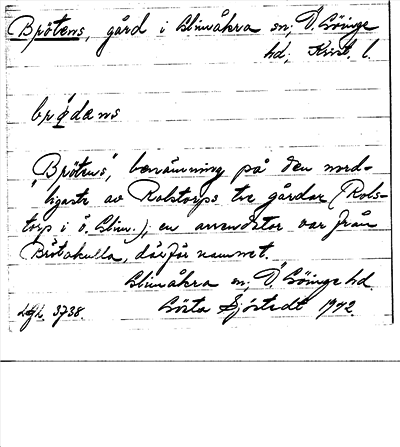 Brötens, gård i Glimåkra sn; Ö. Göinge
hd, Krist. l.
brǿdans
"Brötens", benämning på den nord-
ligaste av Rolstorps tre gårdar (Rols-
torp i ö. Glim.), en arrendator var från
Brötakulla, därför namnet.
Glimåkra sn; Ö. Göinge hd.
Gösta Sjöstedt 1942.
3738.